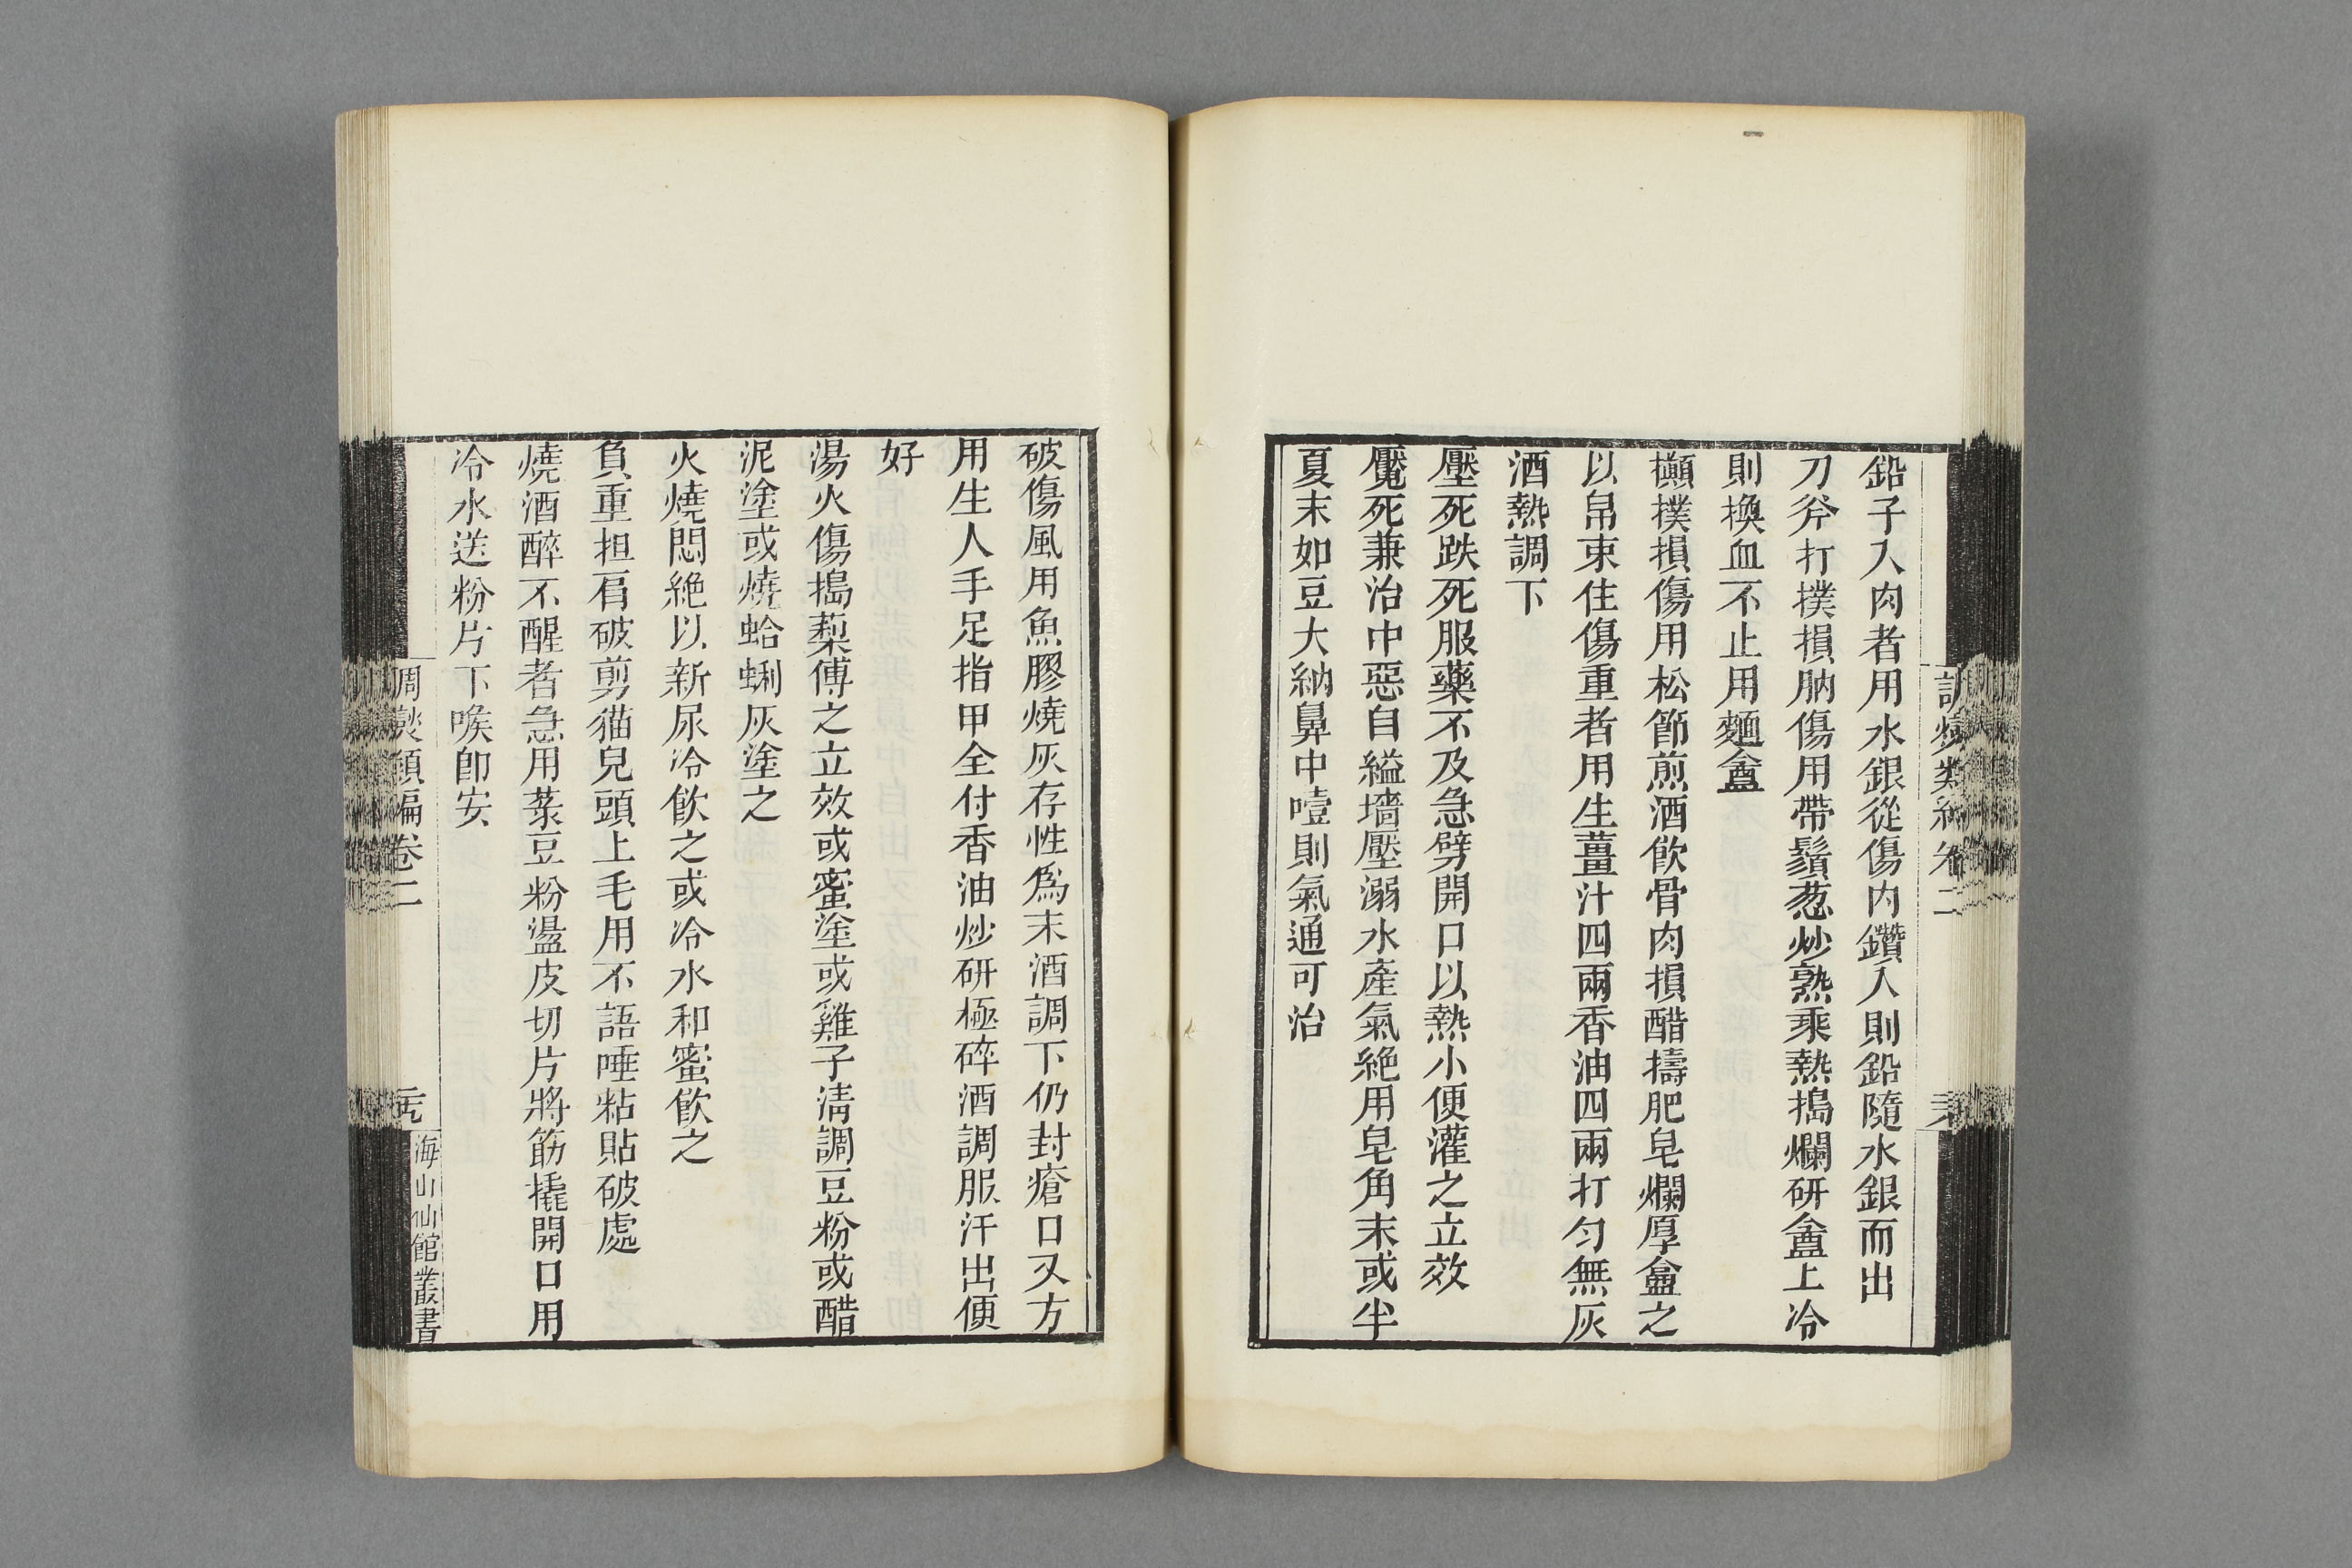 鉛子入肉者用水銀從傷内鑽入則鉛隨水銀而出
刀斧打撲損肭傷用帶鬚葱炒熟乘熱搗爛研盦上冷
則換血不止用麵盦
攧撲損傷用松節煎酒飲骨肉損醋擣肥皂爛厚盦之
以帛束住傷重者用生薑汁四兩香油四兩打匀無灰
酒熱調下
壓死跌死服藥不及急劈開口以熱小便灌之立效
魘死兼治中惡自縊墻壓溺水產氣絶用皂角末或半
夏末如豆大納鼻中嚏則氣通可治
破傷風用魚膠燒灰存性爲末酒調下仍封瘡口又方
用生人手足指甲全付香油炒研極碎酒調服汗出便
好
湯火傷搗蔾傅之立效或蜜塗或雞子清調豆粉或醋
泥塗或燒蛤蜊灰塗之
火燒悶絶以新尿冷飲之或冷水和蜜飲之
負重担肩破剪猫兒頭上毛用不語唾粘貼破處
燒酒醉不醒者急用菉豆粉盪皮切片將筯撬開口用
冷水送粉片下喉即安
調燮類編卷二
海山仙館叢書